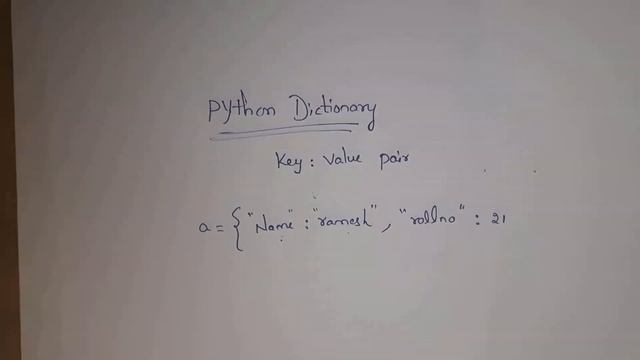 Python Dictionary
Key : Value pair
a = { "Name" : "ramesh" , "rollno" : 21